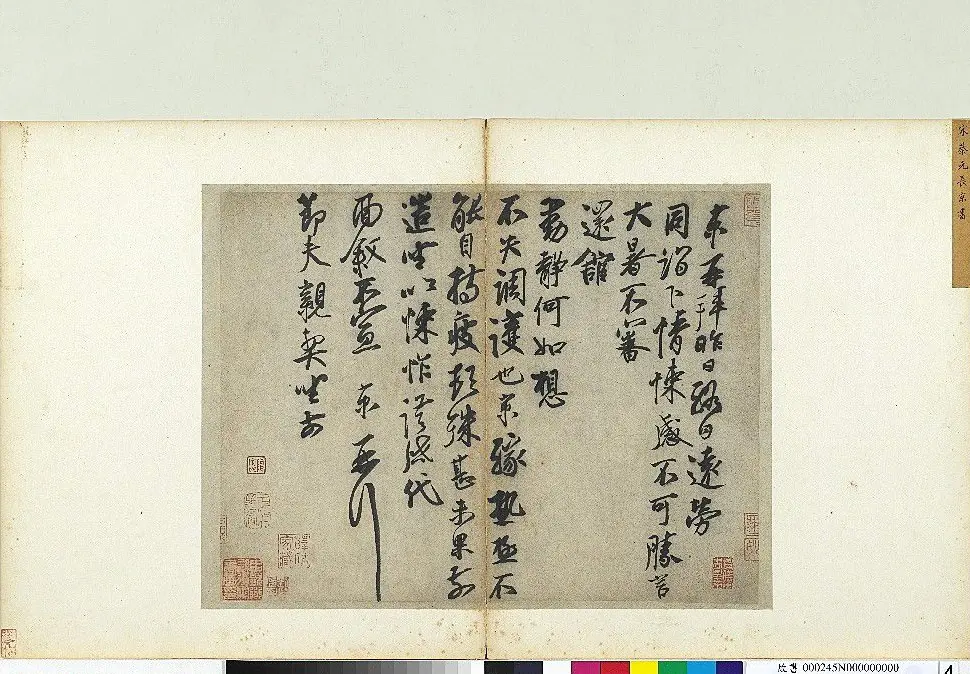 宋蔡元長京書
京再拜昨日終日遠勞
同詣下情悚感不可勝言
大暑不審
還舘
動靜何如想
不失調護也京緣熱極不
能自持疲頓殊甚未果前
造坐次悚怍謹啟代
面敘不宣 京再拜
節夫親契坐前
故書 000245N000000000
4